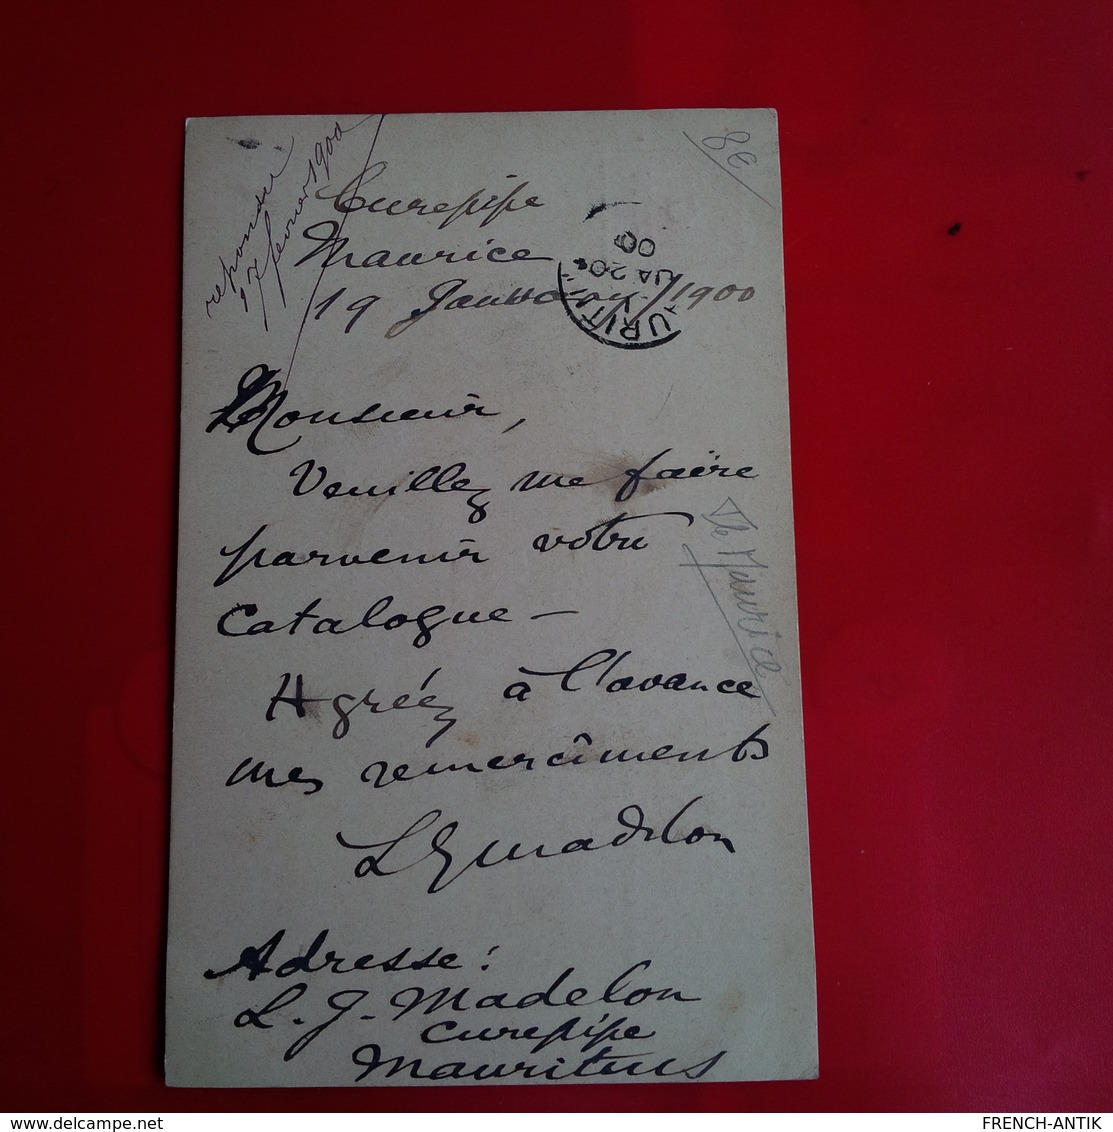 repondu
17 février 1900
8€
Curepipe
Maurice
19 Janvier/1900
JA 20
00
Monsieur,
Veuillez me faire
parvenir votre
Catalogue —
Ile Maurice
Agréez à l'avance
mes remerciments
LJ Madelon
Adresse :
L. J. Madelon
Curepipe
Mauritius
www.delcampe.net
FRENCH-ANTIK